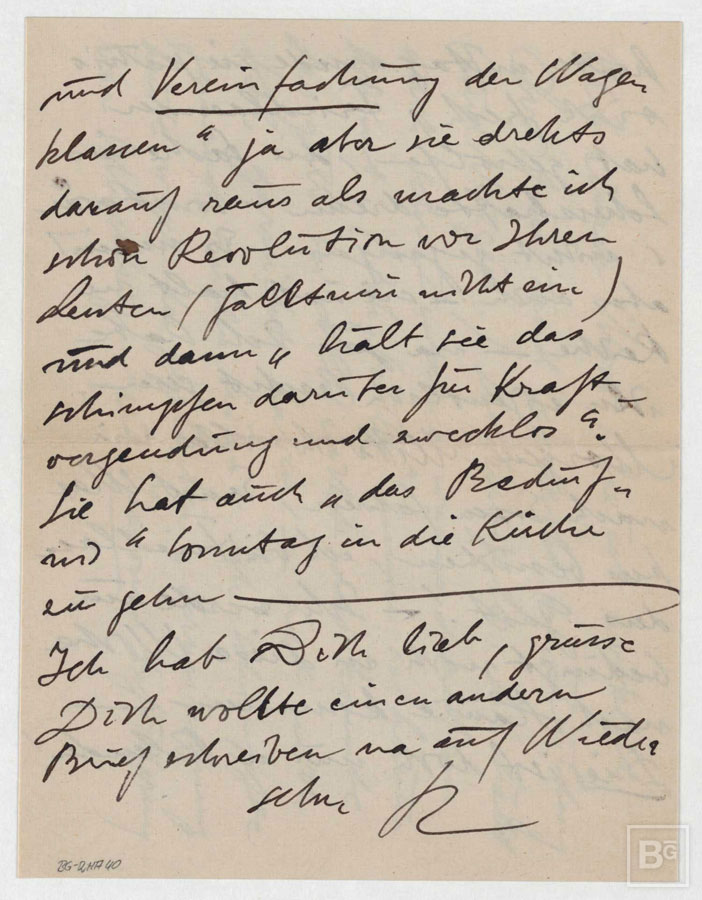 und Vereinfachung der Wagen
klassen" ja aber sie drehts
darauf raus als machte ich
schon Revolution vor Ihren
Leuten (fällt mir nicht ein)
und dann „hält sie das
schimpfen darüber für Kraft
vergeudung und zwecklos".
Sie hat auch „das Bedürf„
nis" Sonntag in die Kirche
zu gehn
Ich hab Dich lieb, grüsse
Dich wollte einen andern
Brief schreiben na auf Wieder
sehn
BG